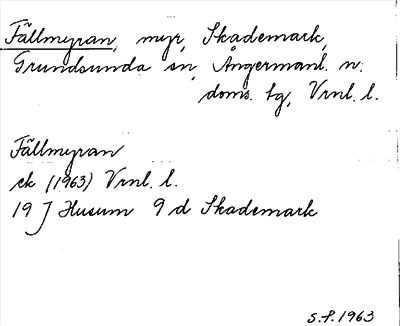 Fällmyran, myr, Skademark,
Grundsunda sn, Ångermanl. n.
doms. tg, Vrnl. l.
Fällmyran
ek (1963) Vrnl. l.
19 J Husum 9 d Skademark
S.F. 1963